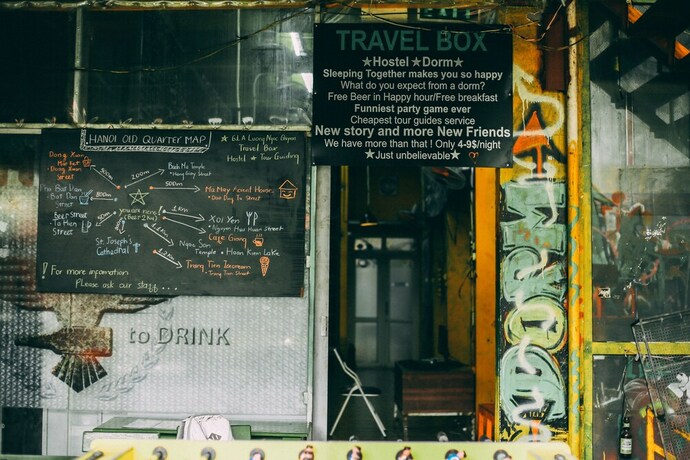 TRAVEL BOX
★Hostel ★Dorm★
Sleeping Together makes you so happy
What do you expect from a dorm?
Free Beer in Happy hour/Free breakfast
Funniest party game ever
Cheapest tour guides service
New story and more New Friends
We have more than that ! Only 4-9$/night
★Just unbelievable★
HANOI OLD QUARTER MAP
Travel Box
Hostel ★ Tour Guiding
Dong Xuan
Market
Dong Xuan
Street
900m
200m
Bach Ma Temple
Hang Buom Street
500m
Street
800m
you are here!
1km
Xoi Yen
Nguyen Huu Huan Street
Beer Street
Ta Hien
Street
St. Joseph's
Cathedral
Cafe Giang
Ngoc Son
Temple • Hoan Kiem Lake
Trang Tien Icecream
Trang Tien Street
! For more information
Please ask our staff
to DRINK